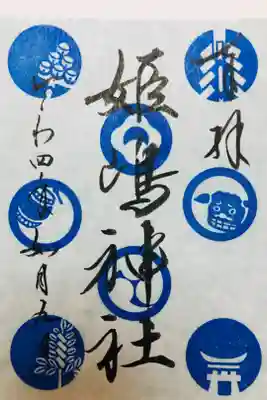 奉拝
姫嶋神社
令和四年如月五日